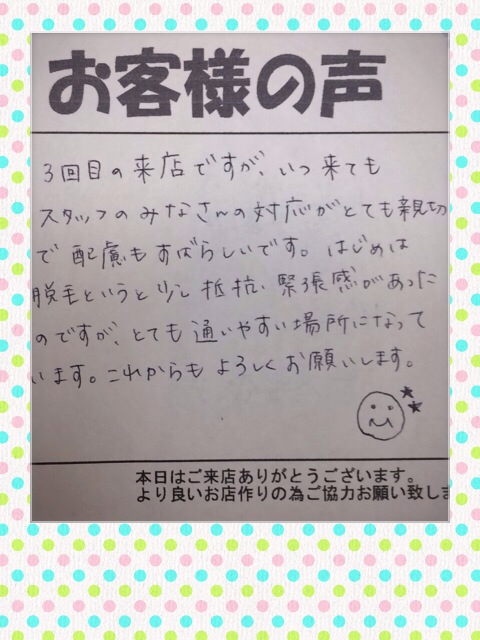 お客様の声
3回目の来店ですが、いつ来ても
スタッフのみなさんの対応がとても親切
で配慮もすばらしいです。はじめは
脱毛というと少し抵抗、緊張感があった
のですが、とても通いやすい場所になって
います。これからもよろしくお願いします。
本日はご来店ありがとうございます。
より良いお店作りの為ご協力お願い致しま